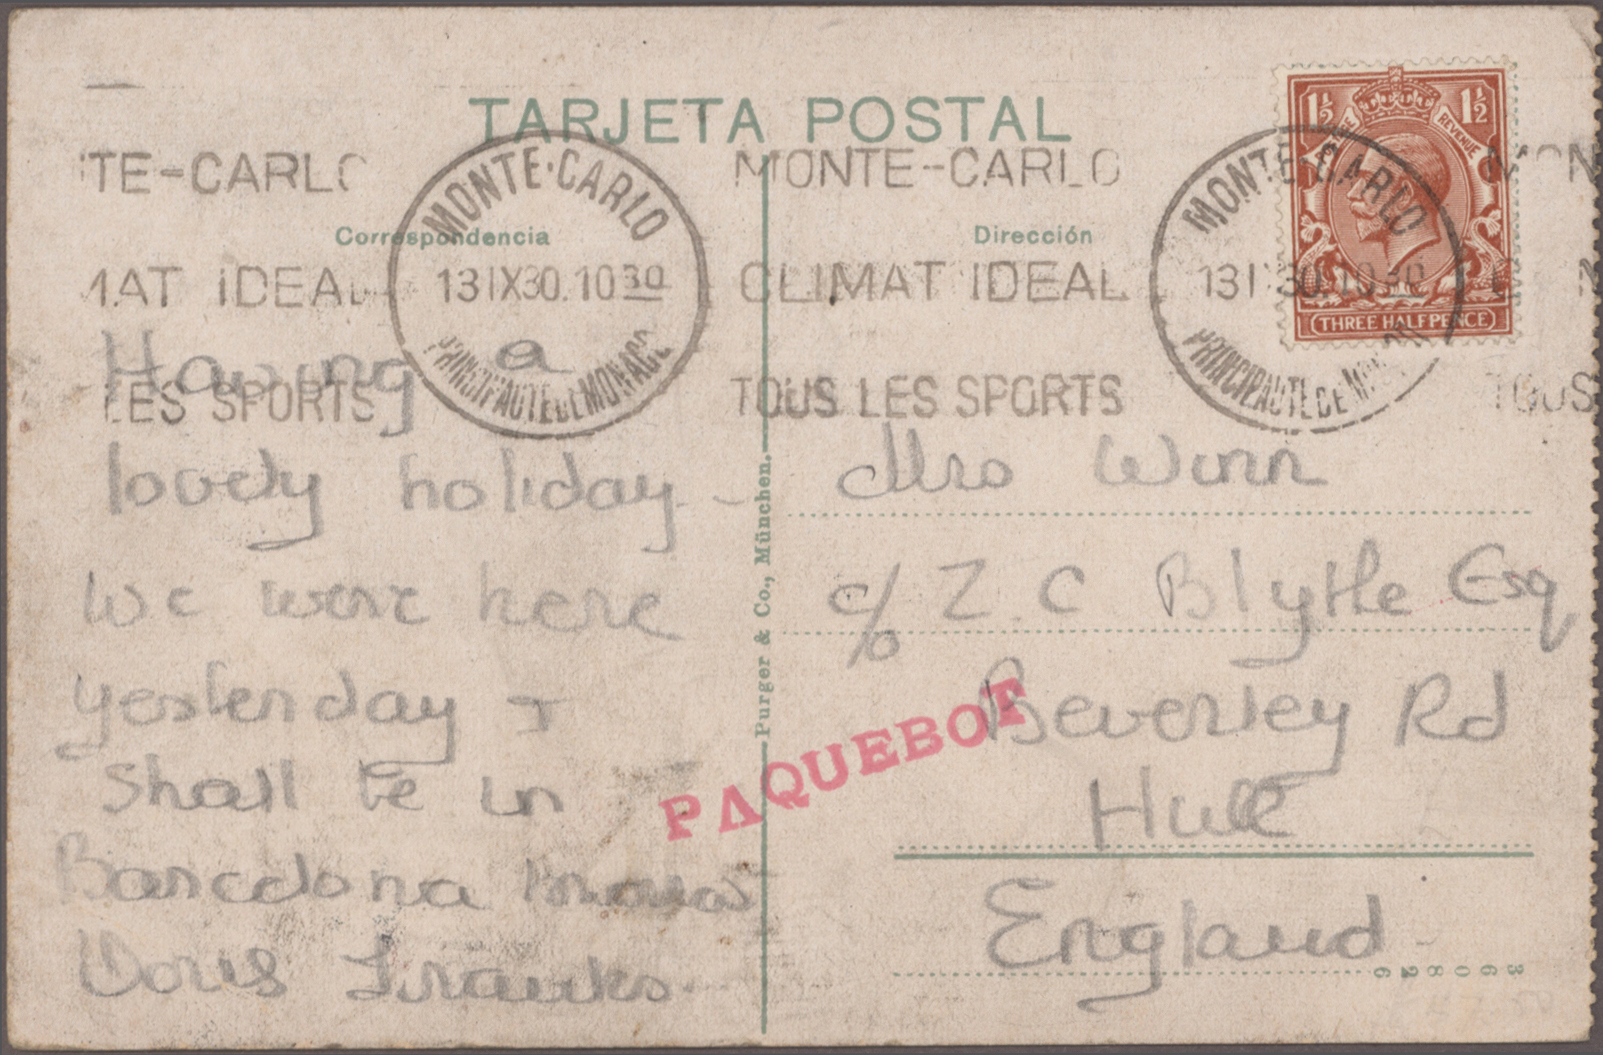 TARJETA POSTAL
TE-CARLO
MAT IDEAL
LES SPORTS
MONTE-CARLO
13 IX 30. 10 30
PRINCIPAUTE DE MONACO
MONTE-CARLO
CLIMAT IDEAL
TOUS LES SPORTS
MONTE-CARLO
13 I 30. 10 30
PRINCIPAUTE DE MONACO
MON
TOUS
1½ 1½
REVENUE
THREE HALFPENCE
Correspondencia
Dirección
Having a
lovely holiday
We were here
yesterday I
Shall be in
Barcelona
Doris Franks
Purger & Co., München.
PAQUEBOT
Mrs Winn
c/o Z. C Blythe Esq
Beverley Rd
Hull
England